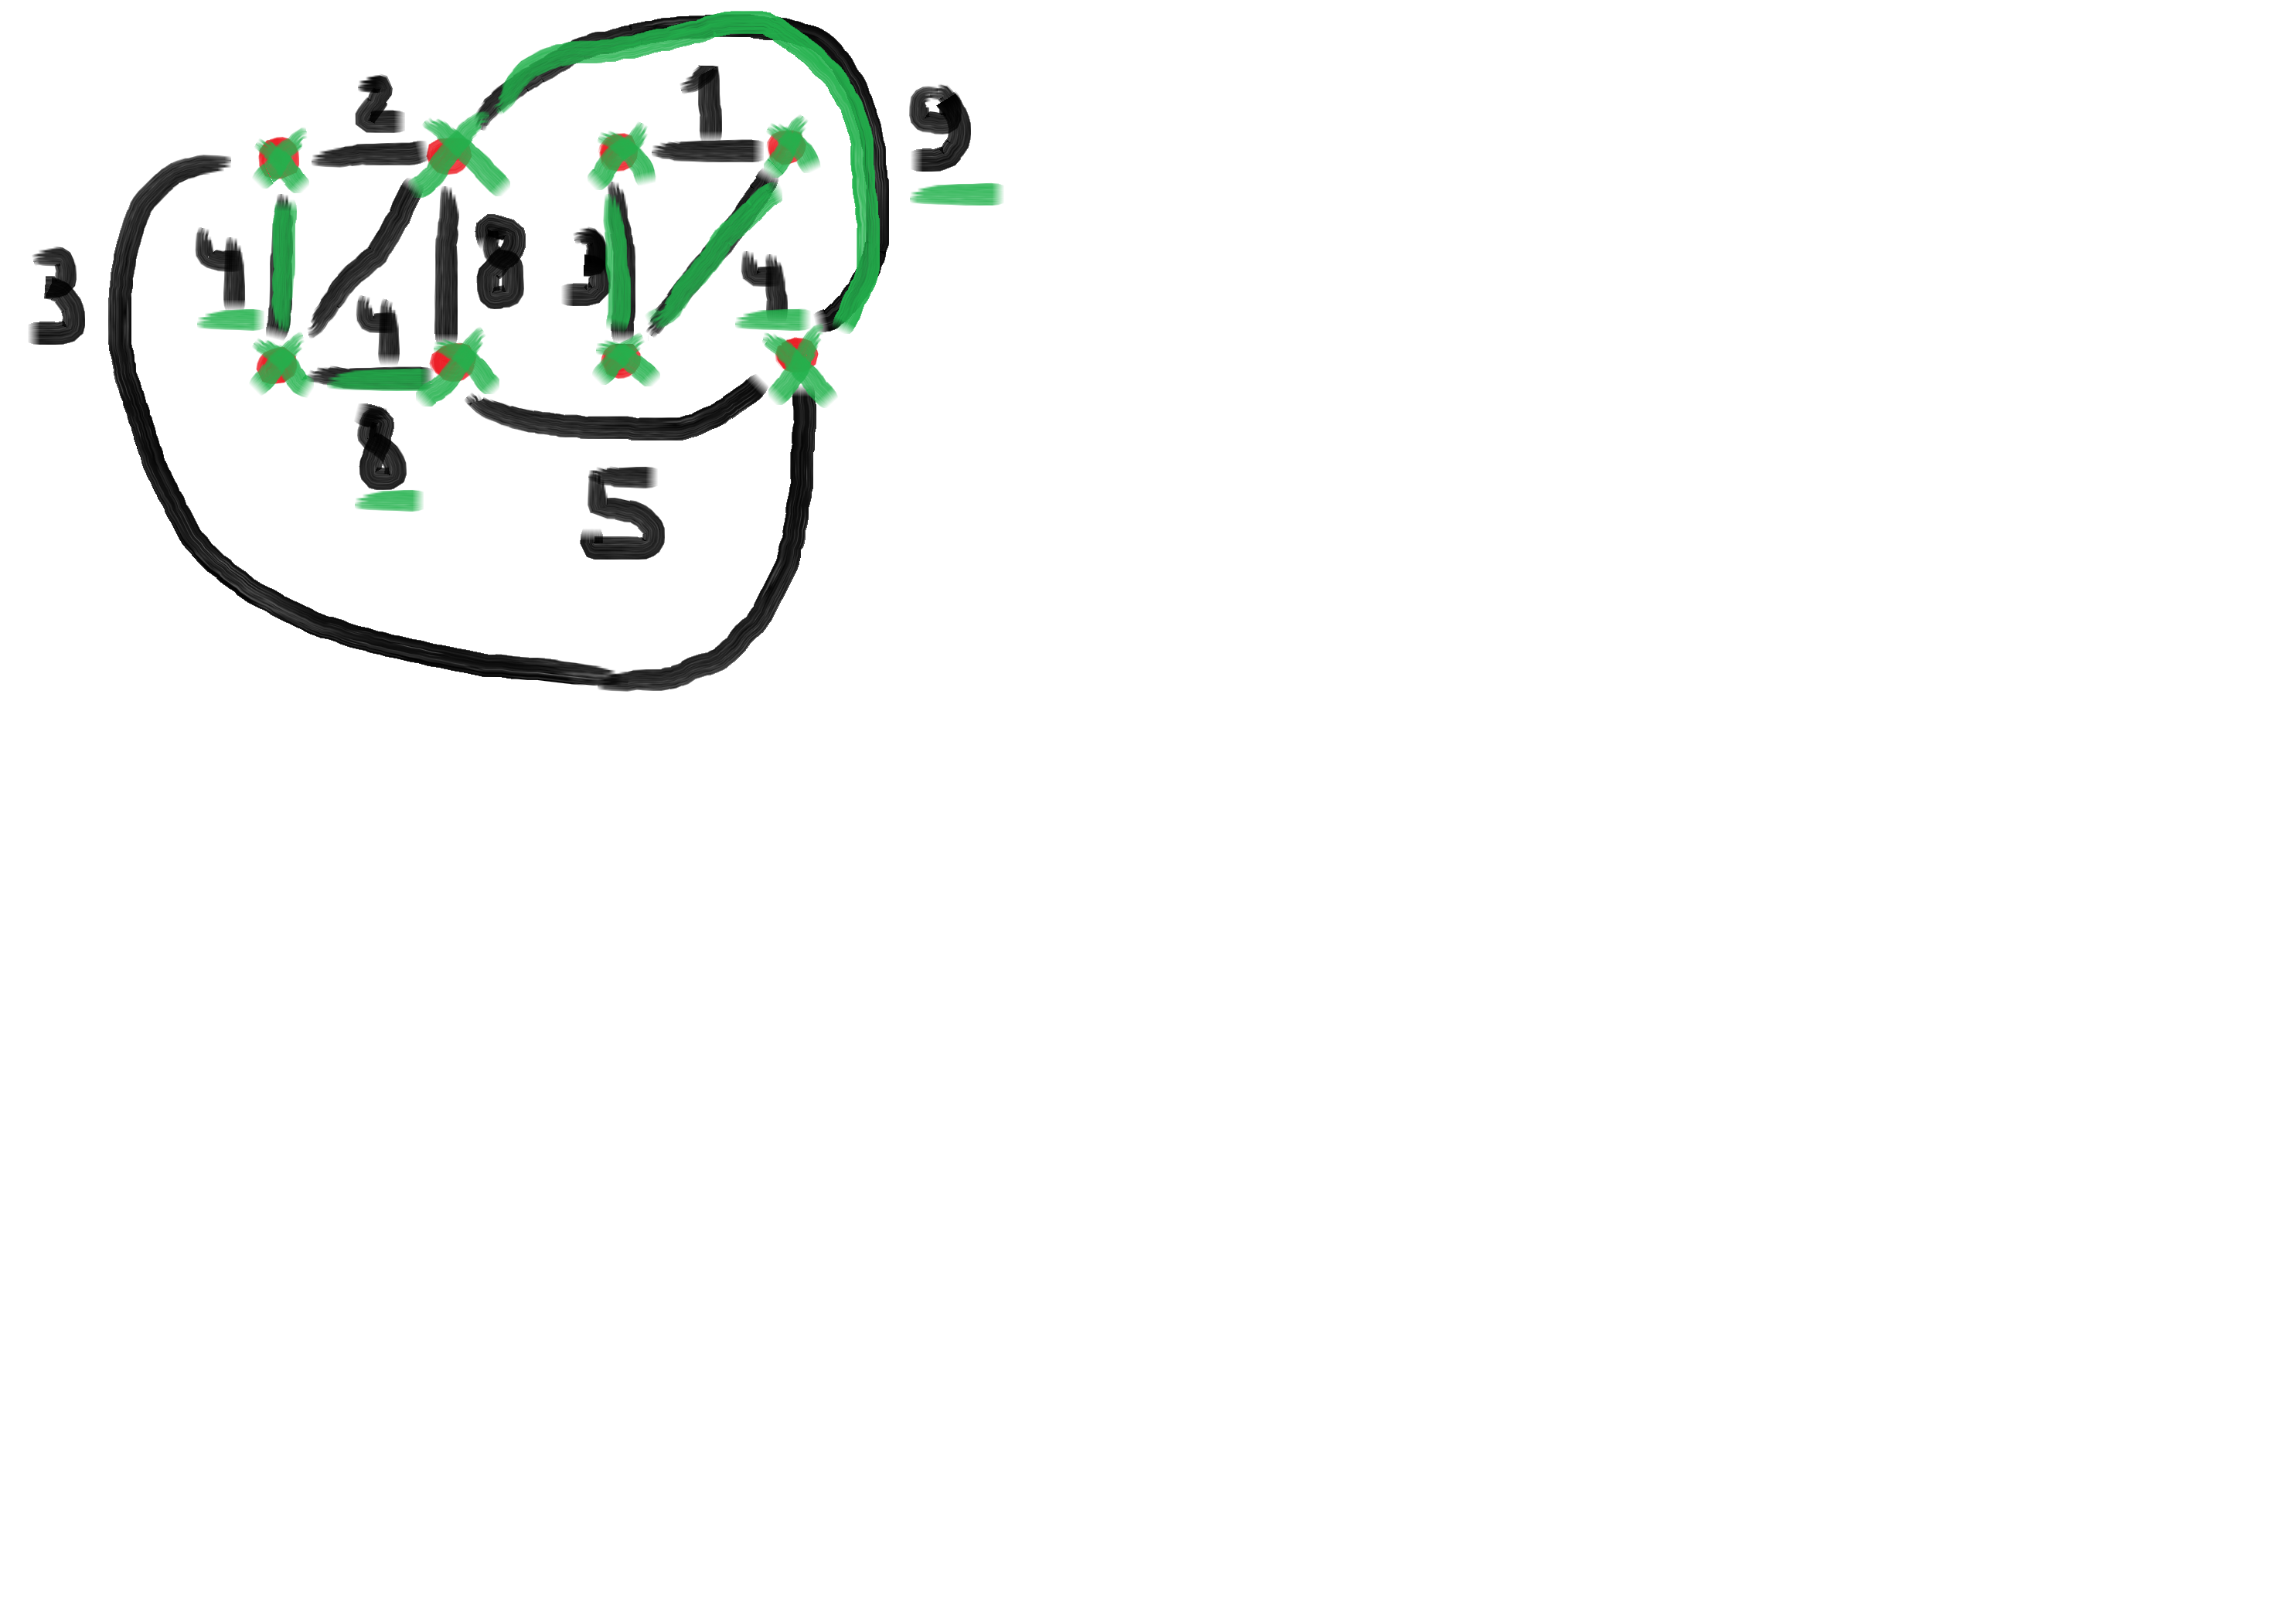 2 1 9
3 4 4 8 3 4
8 5